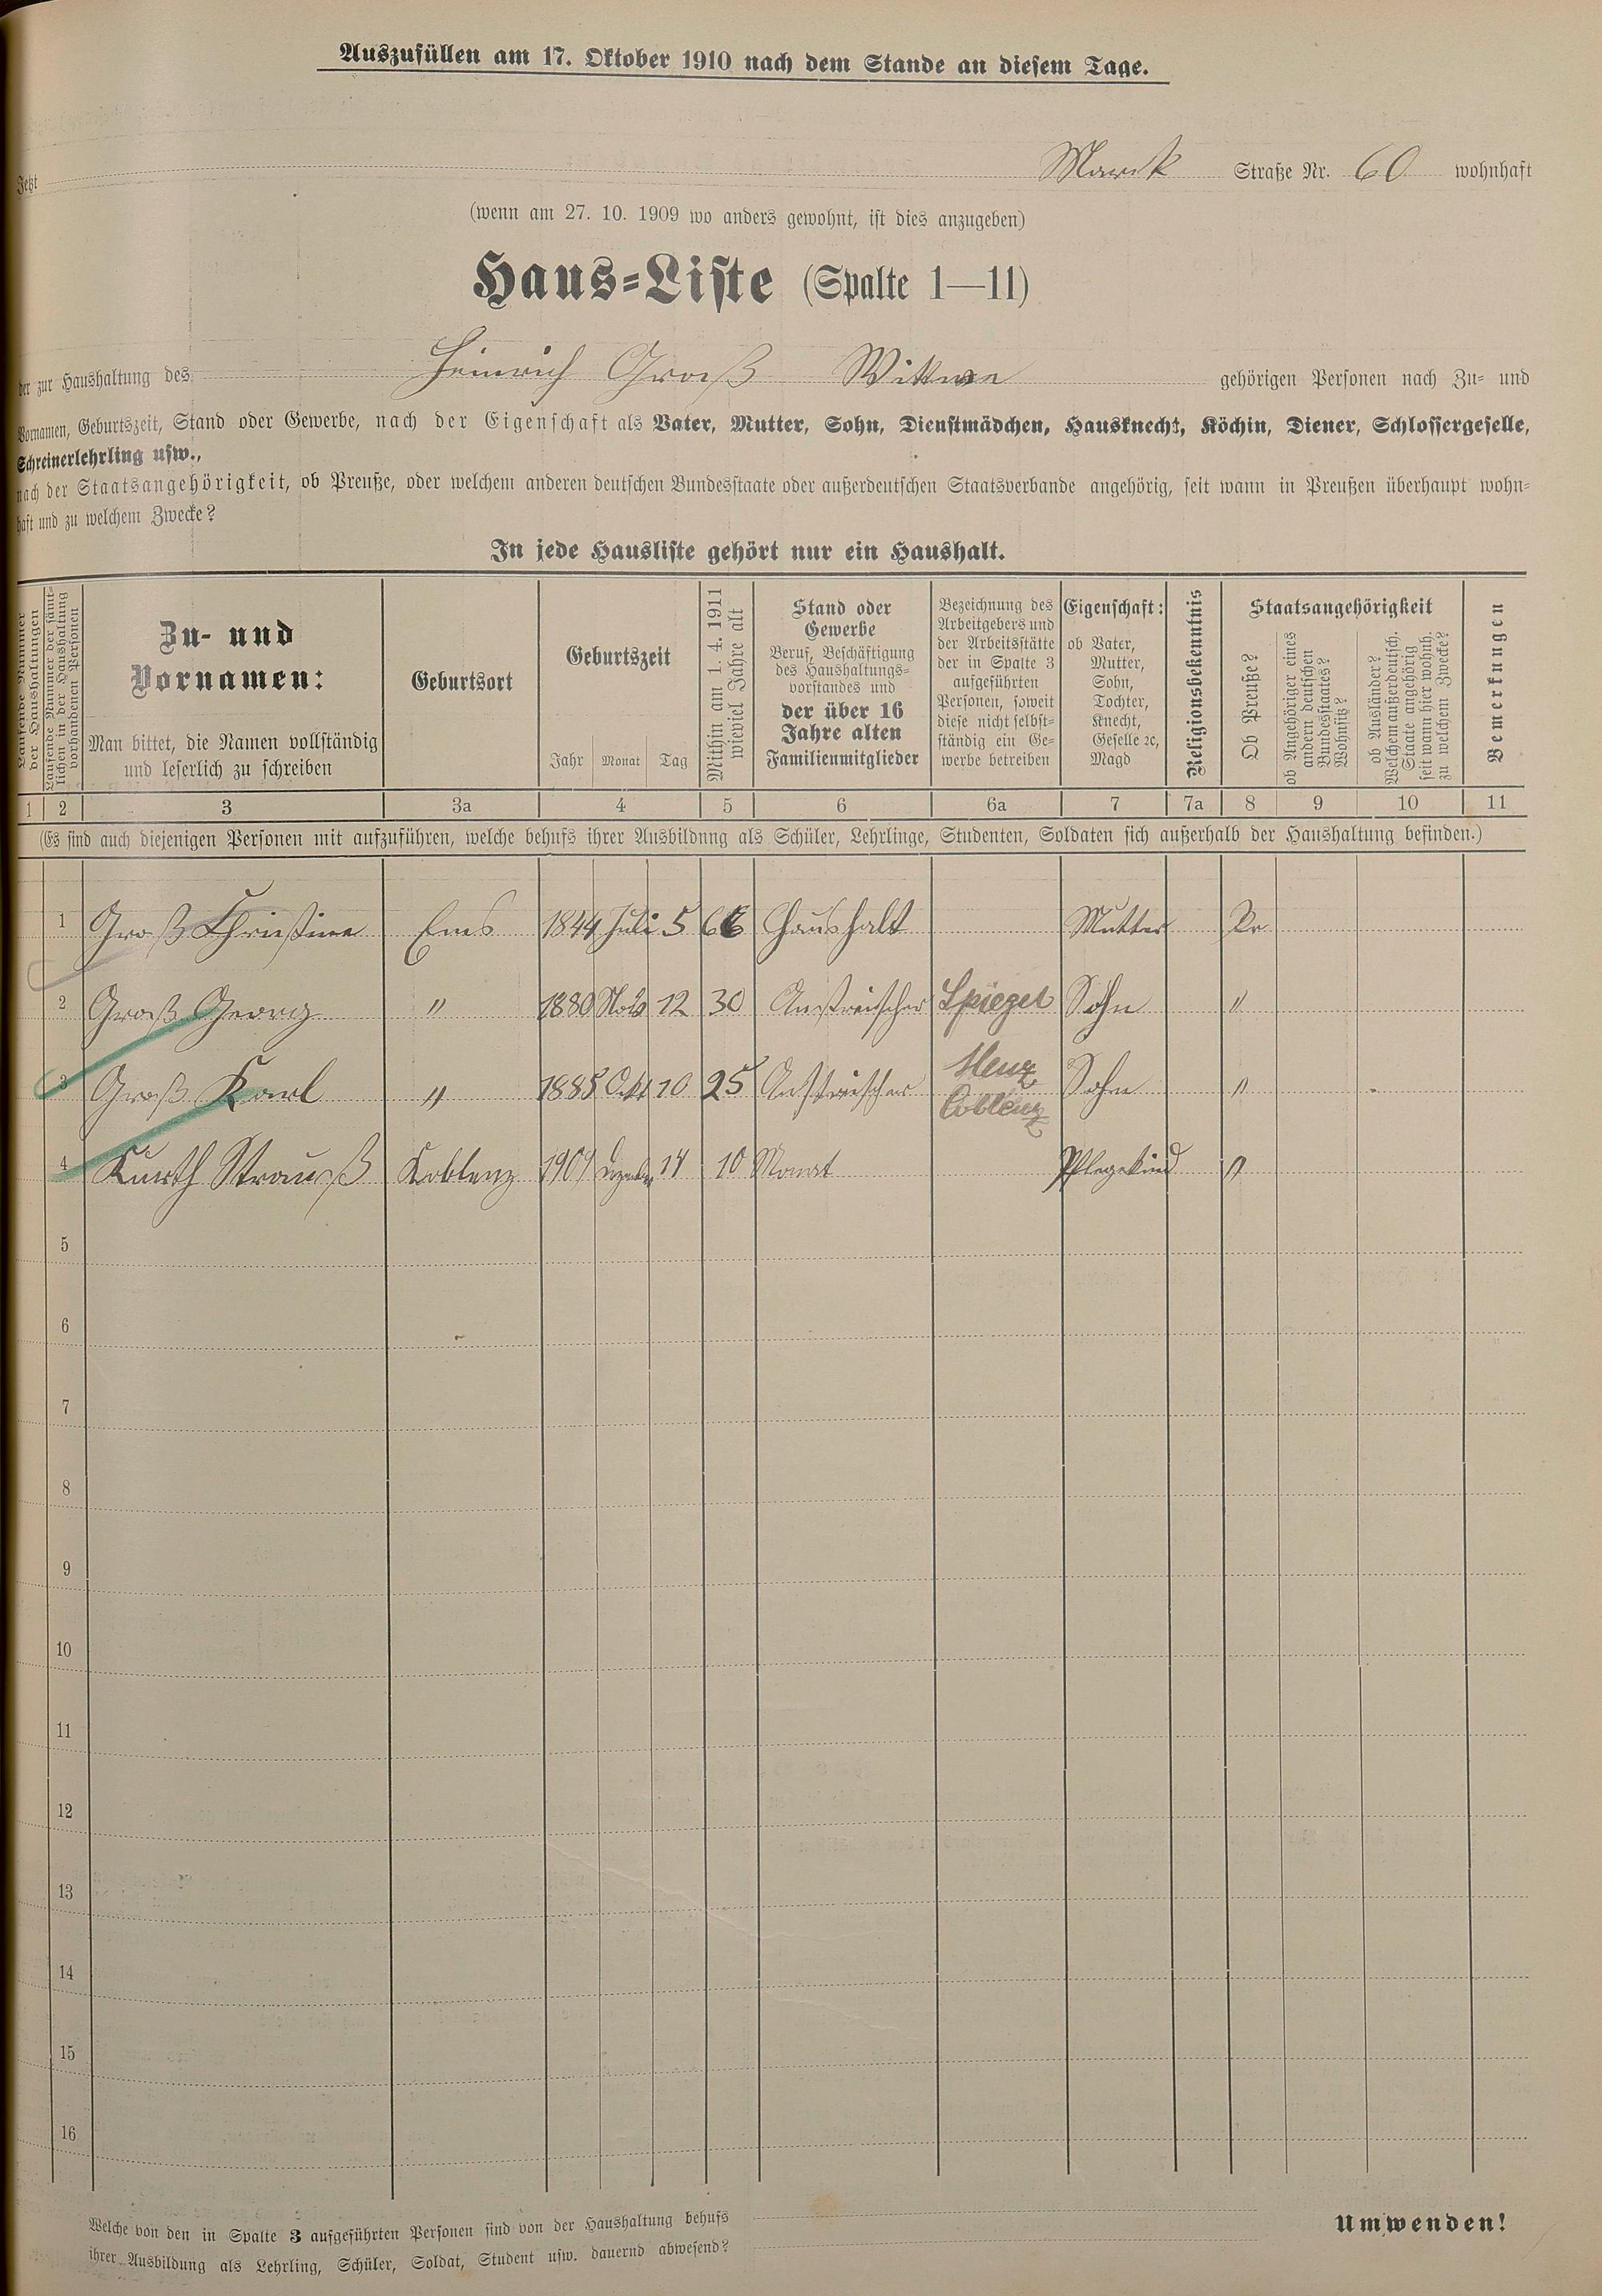 Auszufüllen am 17. Oktober 1910 nach dem Stande an diesem Tage.
Jetzt Markt Straße Nr. 60 wohnhaft
(wenn am 27. 10. 1909 wo anders gewohnt, ist dies anzugeben)
Haus-Liste (Spalte 1—11)
der zur Haushaltung des Heinrich Groß Wittwe gehörigen Personen nach Zu- und
Vornamen, Geburtszeit, Stand oder Gewerbe, nach der Eigenschaft als Vater, Mutter, Sohn, Dienstmädchen, Hausknecht, Köchin, Diener, Schlossergeselle,
Schreinerlehrling usw.,
nach der Staatsangehörigkeit, ob Preuße, oder welchem anderen deutschen Bundesstaate oder außerdeutschen Staatsverbande angehörig, seit wann in Preußen überhaupt wohn-
haft und zu welchem Zwecke?
In jede Hausliste gehört nur ein Haushalt.
Laufende Nummer
der Haushaltungen
Laufende Nummer der sämt-
lichen in der Haushaltung
vorhandenen Personen
Zu- und
Vornamen:
Man bittet, die Namen vollständig
und leserlich zu schreiben
Geburtsort
Geburtszeit
Jahr Monat Tag
Mithin am 1. 4. 1911
wieviel Jahre alt
Stand oder
Gewerbe
Beruf, Beschäftigung
des Haushaltungs-
vorstandes und
der über 16
Jahre alten
Familienmitglieder
Bezeichnung des
Arbeitgebers und
der Arbeitsstätte
der in Spalte 3
aufgeführten
Personen, soweit
diese nicht selbst-
ständig ein Ge-
werbe betreiben
Eigenschaft:
ob Vater,
Mutter,
Sohn,
Tochter,
Knecht,
Geselle ꝛc,
Magd
Religionsbekenntnis
Staatsangehörigkeit
Ob Preuße?
ob Angehöriger eines
andern deutschen
Bundesstaates?
Wohnsitz?
ob Ausländer?
Welchem außerdeutsch.
Staate angehörig
seit wann hier wohnh.
zu welchem Zwecke?
Bemerkungen
1 2 3 3a 4 5 6 6a 7 7a 8 9 10 11
(Es sind auch diejenigen Personen mit aufzuführen, welche behufs ihrer Ausbildung als Schüler, Lehrlinge, Studenten, Soldaten sich außerhalb der Haushaltung befinden.)
1 Groß Christine Ems 1844 Juli 5 66 Haushalt Mutter Pr
2 Groß Georg " 1880 Nov 12 30 Anstreicher Spiegel Sohn "
3 Groß Karl " 1885 Okt 10 25 Anstreicher Coblenz Sohn "
4 Kurth Strauß Koblenz 1909 Dezember 14 10 Monat Pflegekind "
5
6
7
8
9
10
11
12
13
14
15
16
Welche von den in Spalte 3 aufgeführten Personen sind von der Haushaltung behufs
ihrer Ausbildung als Lehrling, Schüler, Soldat, Student usw. dauernd abwesend?
Umwenden!